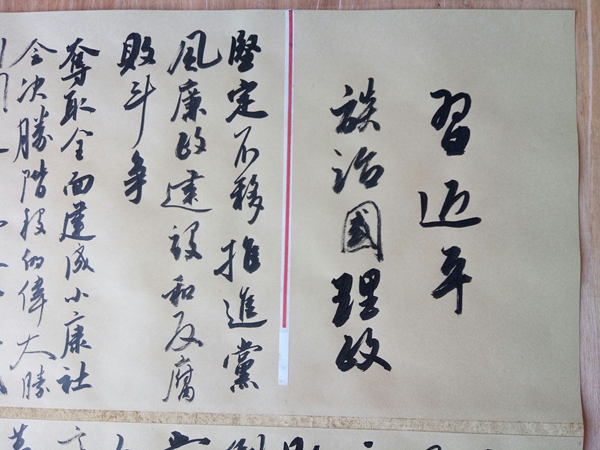 習近平
談治國理政
堅定不移推進黨
風廉政建設和反腐
敗斗争
奪取全面建成小康社
会决勝階段的偉大勝